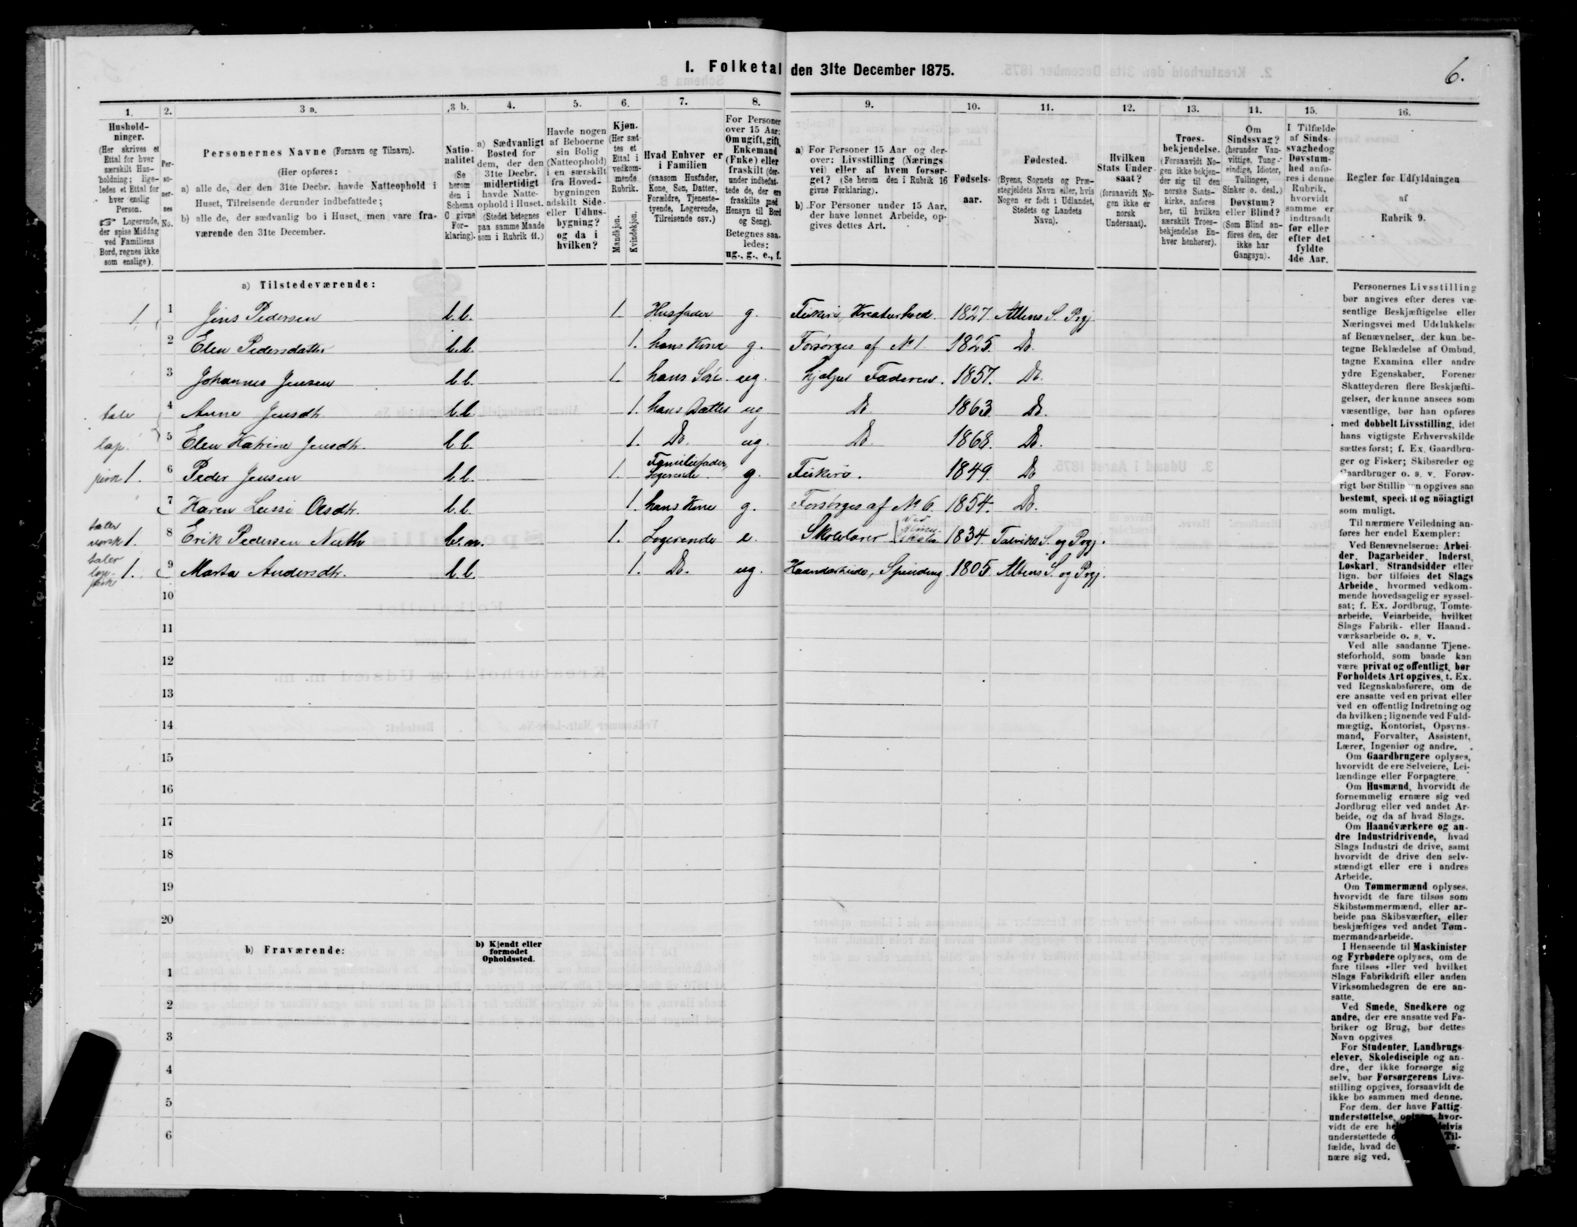 6.
I. Folketal den 31te December 1875.
1.
Hushold-
ninger.
(Her skrives et
Ettal for hver
særskilt Hus-
holdning; lige-
ledes et Ettal for
hver enslig
Person.
☞ Logerende,
der spise Middag
ved Familiens
Bord, regnes ikke
som enslige).
2.
Per-
so-
ner-
nes
No.
3 a.
Personernes Navne (Fornavn og Tilnavn).
(Her opføres:
a) alle de, der den 31te Decbr. havde Natteophold i
Huset, Tilreisende derunder indbefattede;
b) alle de, der sædvanlig bo i Huset, men vare fra-
værende den 31te December.
3 b.
Natio-
nalitet
(Se
herom
den i
Schema
C givne
For-
klaring).
4.
a) Sædvanligt
Bosted for
dem, der den
31te Decbr.
midlertidigt
havde Natte-
ophold i Huset.
(Stedet betegnes
paa samme Maade
som i Rubrik 11.)
5.
Havde nogen
af Beboerne
sin Bolig
(Natteophold)
i en særskilt
fra Hoved-
bygningen
adskilt Side-
eller Udhus-
bygning?
og da i
hvilken?
6.
Kjøn.
(Her sæt-
tes et
Ettal i
vedkom-
mende
Rubrik.
Mandkjøn.
Kvindekjøn.
7.
Hvad Enhver er
i Familien
(saasom Husfader,
Kone, Søn, Datter,
Forældre, Tjeneste-
tyende, Logerende,
Tilreisende osv.)
8.
For Personer
over 15 Aar:
Om ugift, gift,
Enkemand
(Enke) eller
fraskilt (der-
under indbefat-
tede de, der ere
fraskilte med
Hensyn til Bord
og Seng).
Betegnes saa-
ledes:
ug., g., e., f.
9.
a) For Personer 15 Aar og der-
over: Livsstilling (Nærings-
vei) eller af hvem forsør-
get? (Se herom den i Rubrik 16
givne Forklaring).
b) For Personer under 15 Aar,
der have lønnet Arbeide, op-
gives dettes Art.
10.
Fødsels-
aar.
11.
Fødested.
(Byens, Sognets og Præ-
stegjeldets Navn eller, hvis
Nogen er født i Udlandet,
Stedets og Landets
Navn).
12.
Hvilken
Stats Under-
saat?
(forsaavidt No-
gen ikke er
norsk
Undersaat).
13.
Troes-
bekjendelse.
(Forsaavidt No-
gen ikke bekjen-
der sig til den
norske Stats-
kirke, anføres
her, til hvilken
særskilt Troes-
bekjendelse En-
hver henhører).
14.
Om
Sindssvag?
(herunder Van-
vittige, Tung-
sindige, Idioter,
Tullinger,
Sinker o. desl.)
Døvstum?
eller Blind?
(Som Blind an-
føres den, der
ikke har
Gangsyn).
15.
I Tilfælde
af Sinds-
svaghed og
Døvstum-
hed anfø-
res i denne
Rubrik,
hvorvidt
samme er
indtraadt
før eller
efter det
fyldte
4de Aar.
16.
Regler for Udfyldningen
af
Rubrik 9.
a) Tilstedeværende:
1 1 Jens Pedersen b.b. 1 Husfader g. Fisker, Kreaturhold 1827 Altens S. Prgj
2 Elen Pedersdatter b.b. 1. hans Kone g. Forsørges af № 1. 1825. Do.
3 Johannes Jensen b.b. 1 hans Søn ug. hjælper Faderen. 1857. Do.
taler 4 Anne Jensdtr. b.b. 1. hans Datter ug Do. 1863. Do.
lap. 5 Elen Katrine Jensdtr. b.b. 1. Do. ug. Do. 1868. Do.
finsk 1. 6 Peder Jensen b.b. 1. Familiefader, Logerende. g. Fisker. 1849. Do
7 Karen Lussi Olsdtr. b.b. 1. hans Kone g. Forsørges af № 6. 1854. Do.
taler
norsk 1. 8 Erik Pedersen b.n. 1. Logerende e. Skolelærer 1834. Talviks S. og Prgj.
taler
lap.
finsk 1. 9 Marta Andersdtr. b.b. 1. Do. ug. Haandarbeide, Spinding 1805 Altens S. og Prgj.
10
11
12
13
14
15
16
17
18
19
20
b) Fraværende:
b) Kjendt eller
formodet
Opholdssted.
1
2
3
4
5
6
Personernes Livsstilling
bør angives efter deres væ-
sentlige Beskjæftigelse eller
Næringsvei med Udelukkelse
af Benævnelser, der kun be-
tegne Beklædelse af Ombud,
tagne Examina eller andre
ydre Egenskaber. Forener
Skatteyderen flere Beskjæfti-
gelser, der kunne ansees som
væsentlige, bør han opføres
med dobbelt Livsstilling, idet
hans vigtigste Erhvervskilde
sættes først; f. Ex. Gaardbru-
ger og Fisker; Skibsreder og
Gaardbruger o. s. v. Forøv-
rigt bør Stillingen opgives saa
bestemt, specielt og nöiagtigt
som muligt.
Til nærmere Veiledning an-
føres her endel Exempler:
Ved Benævnelserne: Arbei-
der, Dagarbeider, Inderst,
Løskarl, Strandsidder eller
lign. bør tilføies det Slags
Arbeide, hvormed vedkom-
mende hovedsagelig er syssel-
sat; f. Ex. Jordbrug, Tomte-
arbeide, Veiarbeide, hvilket
Slags Fabrik- eller Haand-
værksarbeide o. s. v.
Ved alle saadanne Tjene-
steforhold, som baade kan
være privat og offentligt, bør
Forholdets Art opgives, t. Ex.
ved Regnskabsførere, om de
ere ansatte ved en privat eller
ved en offentlig Indretning og
da hvilken; lignende ved Fuld-
mægtig, Kontorist, Opsyns-
mand, Forvalter, Assistent,
Lærer, Ingeniør og andre.
Om Gaardbrugere oplyses,
hvorvidt de ere Selveiere, Lei-
lændinge eller Forpagtere.
Om Husmænd, hvorvidt de
fornemmelig ernære sig ved
Jordbrug eller ved andet Ar-
beide, og da af hvad Slags.
Om Haandværkere og an-
dre Industridrivende, hvad
Slags Industri de drive, samt
hvorvidt de drive den selv-
stændigt eller ere i andres
Arbeide.
Om Tømmermænd oplyses,
hvorvidt de fare tilsøs som
Skibstømmermænd, eller ar-
beide paa Skibsværfter, eller
beskjæftiges ved andet Tøm-
mermandsarbeide.
I Henseende til Maskinister
og Fyrbødere oplyses, om de
fare tilsøs eller ved hvilket
Slags Fabrikdrift eller anden
Virksomhedsgren de ere an-
satte.
Ved Smede, Snedkere og
andre, der ere ansatte ved Fa-
briker og Brug, bør dettes
Navn opgives
For Studenter, Landbrugs-
elever, Skoledisciple og an-
dre, der ikke forsørge sig
selv, bør Forsørgerens Livs-
stilling opgives, forsaavidt de
ikke bo sammen med denne.
For dem, der have Fattig-
understøttelse, hvor-
vidt de ere
understøttede Til-
fælde, hvad de
nære sig ved.